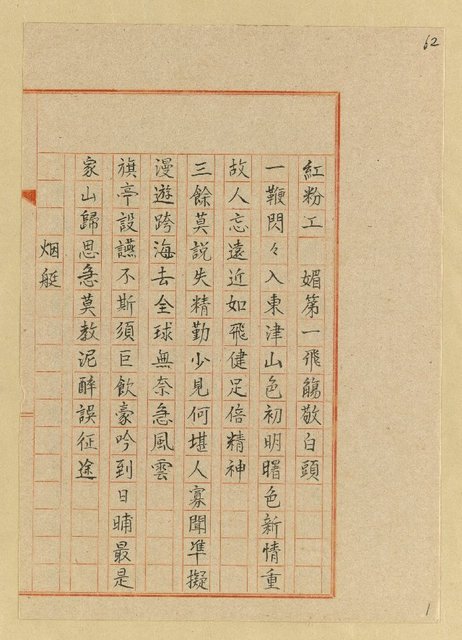 62
紅粉工　媚第一飛觴敬白頭
一鞭閃々入東津山色初明曙色新情重
故人忘遠近如飛健足倍精神
三餘莫説失精勤少見何堪人寡聞準擬
漫遊跨海去全球無奈急風雲
旗亭設讌不斯須巨飲豪吟到日晡最是
家山歸思急莫教泥醉誤征途
烟艇
1